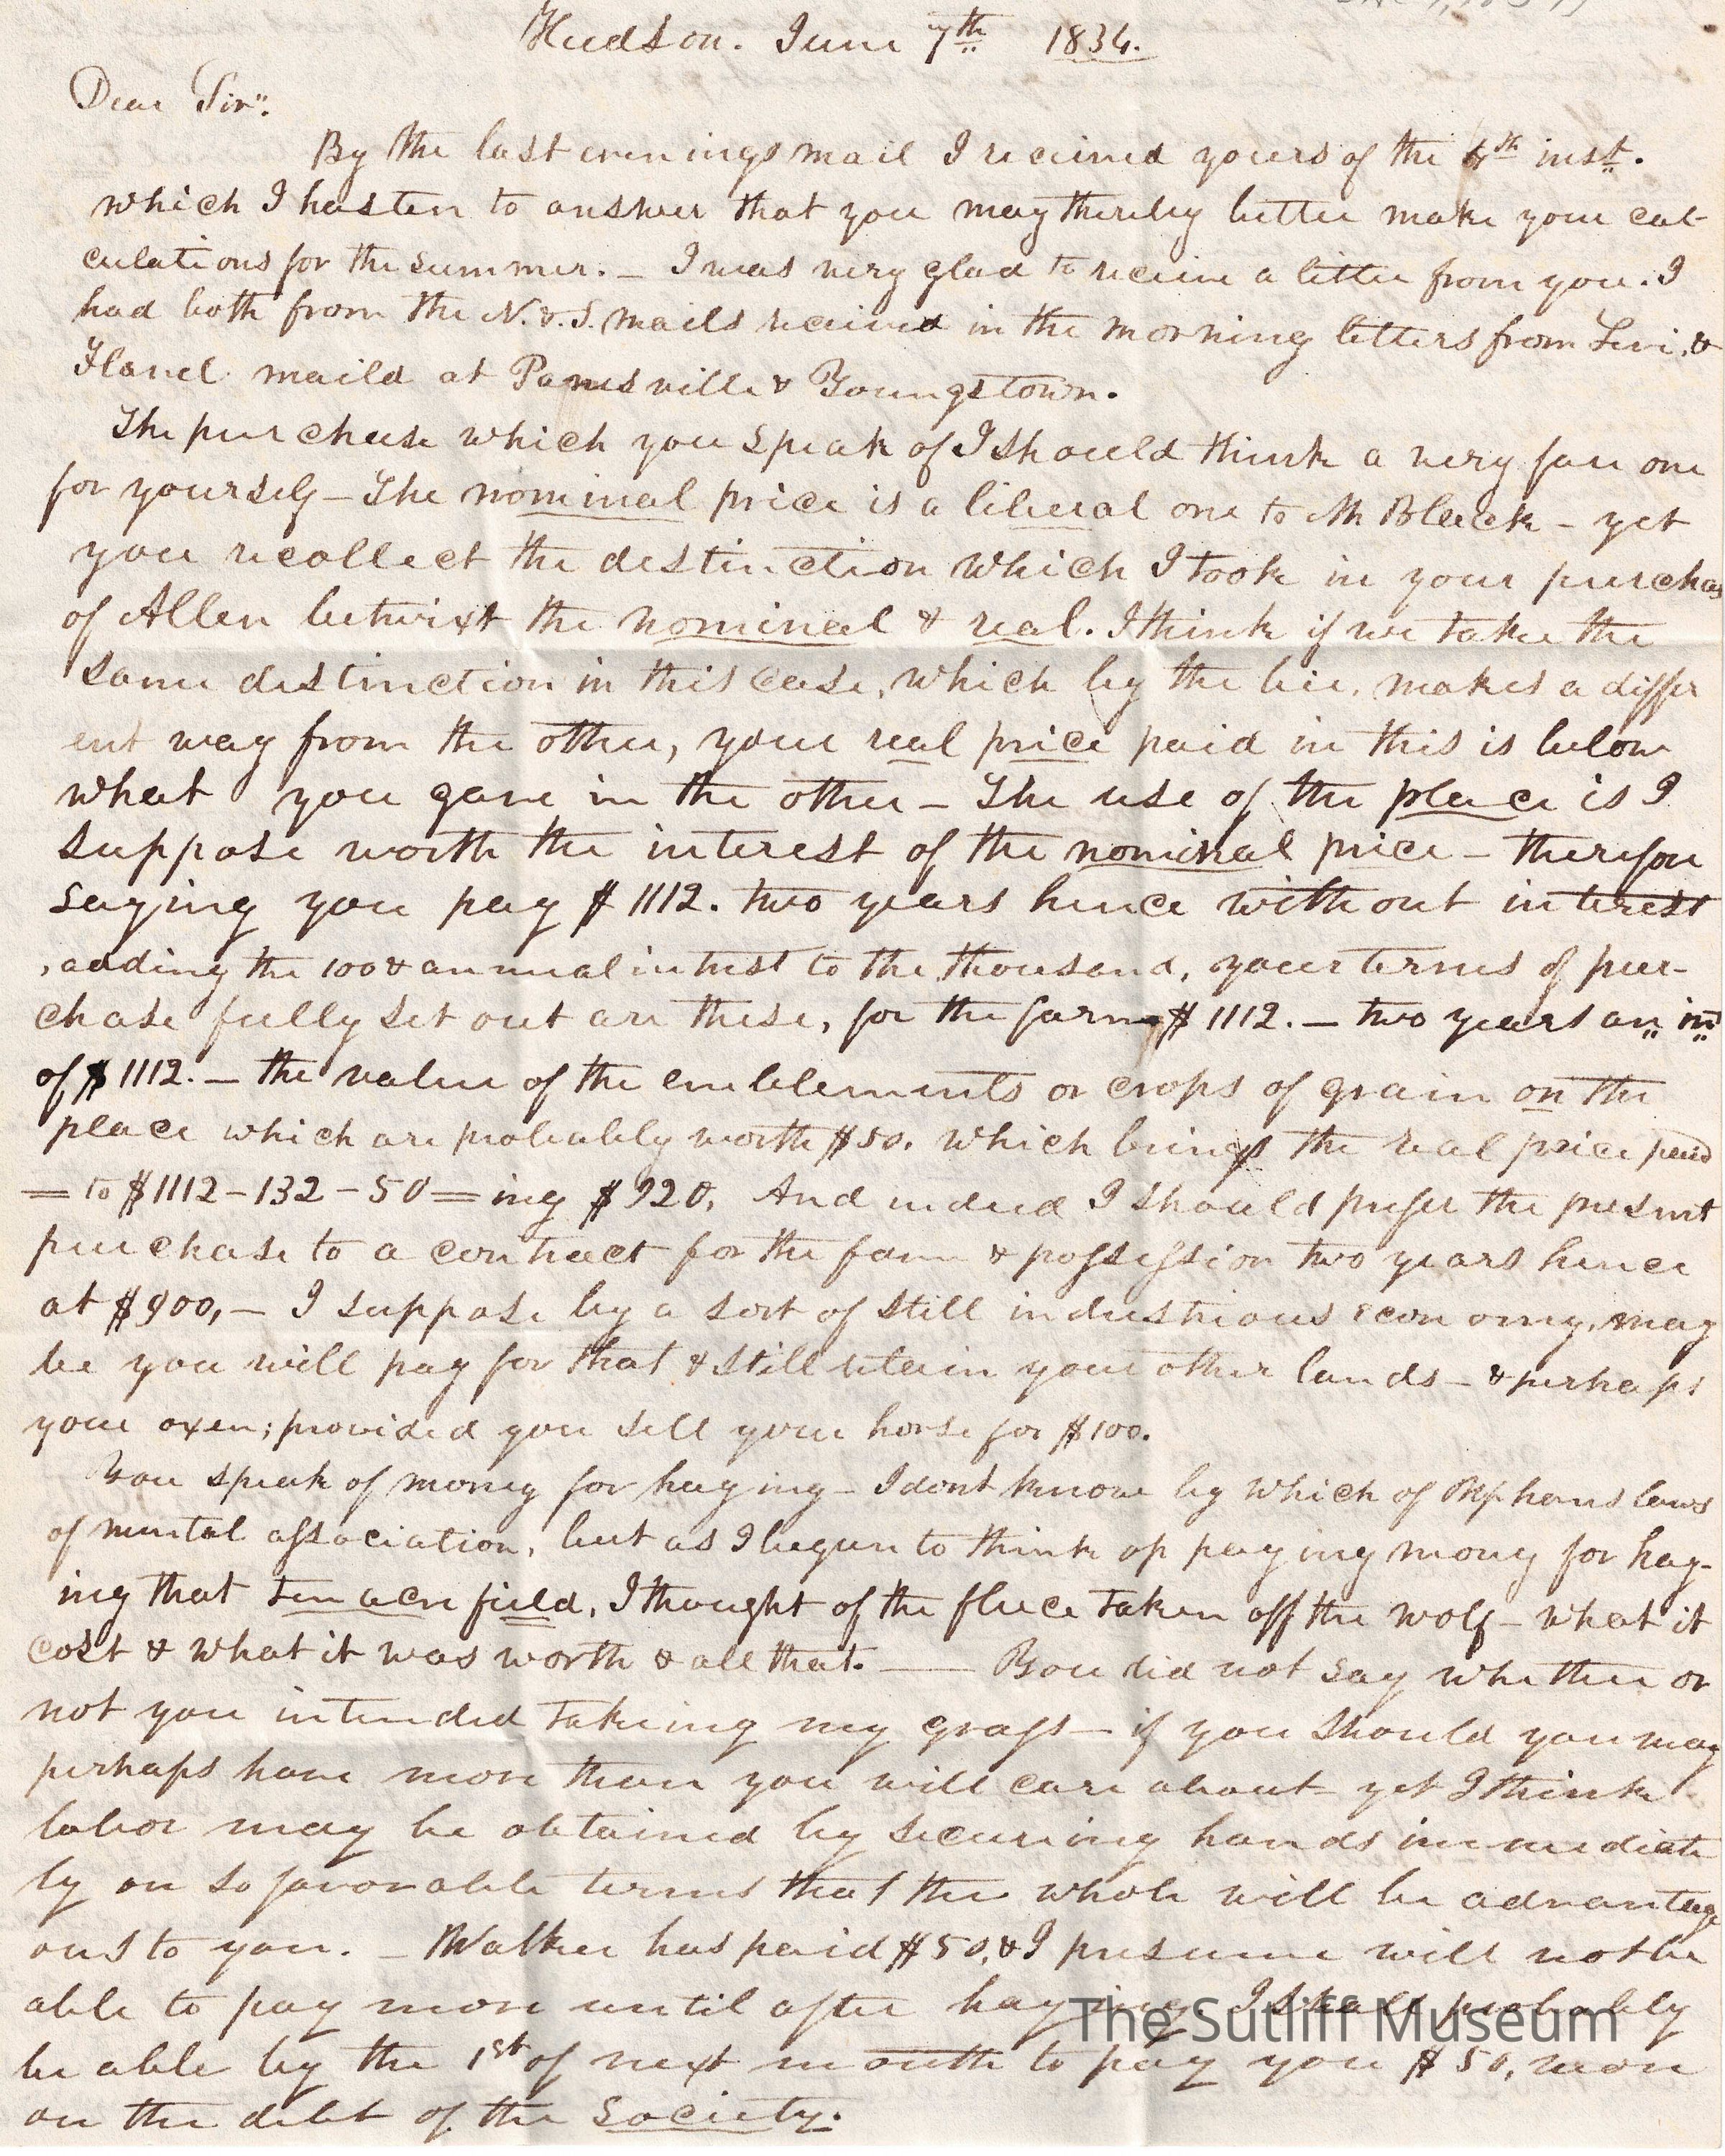 Hudson. June 7th 1834.
Dear Sir".
By the last evenings mail I received yours of the 4th inst.
which I hasten to answer that you may thereby better make your cal-
culations for the summer. – I was very glad to receive a letter from you. I
had both from the N. & S. mails received in the morning letters from Levi, &
Flavel maild at Painesville & Youngstown.
The purchase which you speak of I should think a very fair one
for yourself – The nominal price is a liberal one to Mr Bleeck – yet
you recollect the destinction which I took in your purchas
of Allen betwixt the nominal & real. I think if we take the
same destinction in this case, which by the bie, makes a differ
ent way from the other, your real price paid in this is below
what you gave in the other – The use of the place is I
suppose worth the interest of the nominal price – therefore
saying you pay $1112. two years hence without interest
, adding the 100 & annual intrest to the thousand, your terms of pur-
chase fully set out are these, for the farm $1112. – two years an. in
of $1112. – the value of the emblements or crops of grain on the
place which are probably worth $50. which brings the real price paid
= to $1112 – 132 – 50 = ing $920. And indeed I should prefer the present
purchase to a contract for the farm & possession two years hence
at $900, – I suppose by a sort of still industrious econ omy, may
be you will pay for that & still retain your other lands – & perhaps
your oxen; provided you sell your horse for $100.
You speak of money for haying – I dont know by which of Uphams laws
of mental association, but as I begun to think of paying mony for hay-
ing that ten acre field, I thought of the fleece taken off the wolf – what it
cost & what it was worth & all that. — You did not say whether or
not you intended takeing my grass – if you should you may
perhaps have more than you will care about – yet I think
labor may be obtained by secureing hands immediate
ly on so favorable terms that the whole will be advantage
ous to you. – Walker has paid $50, & I presume will not be
able to pay more until after haying I shall probably
be able by the 1st of next month to pay you $50, more
on the debt of the Society.
The Sutliff Museum